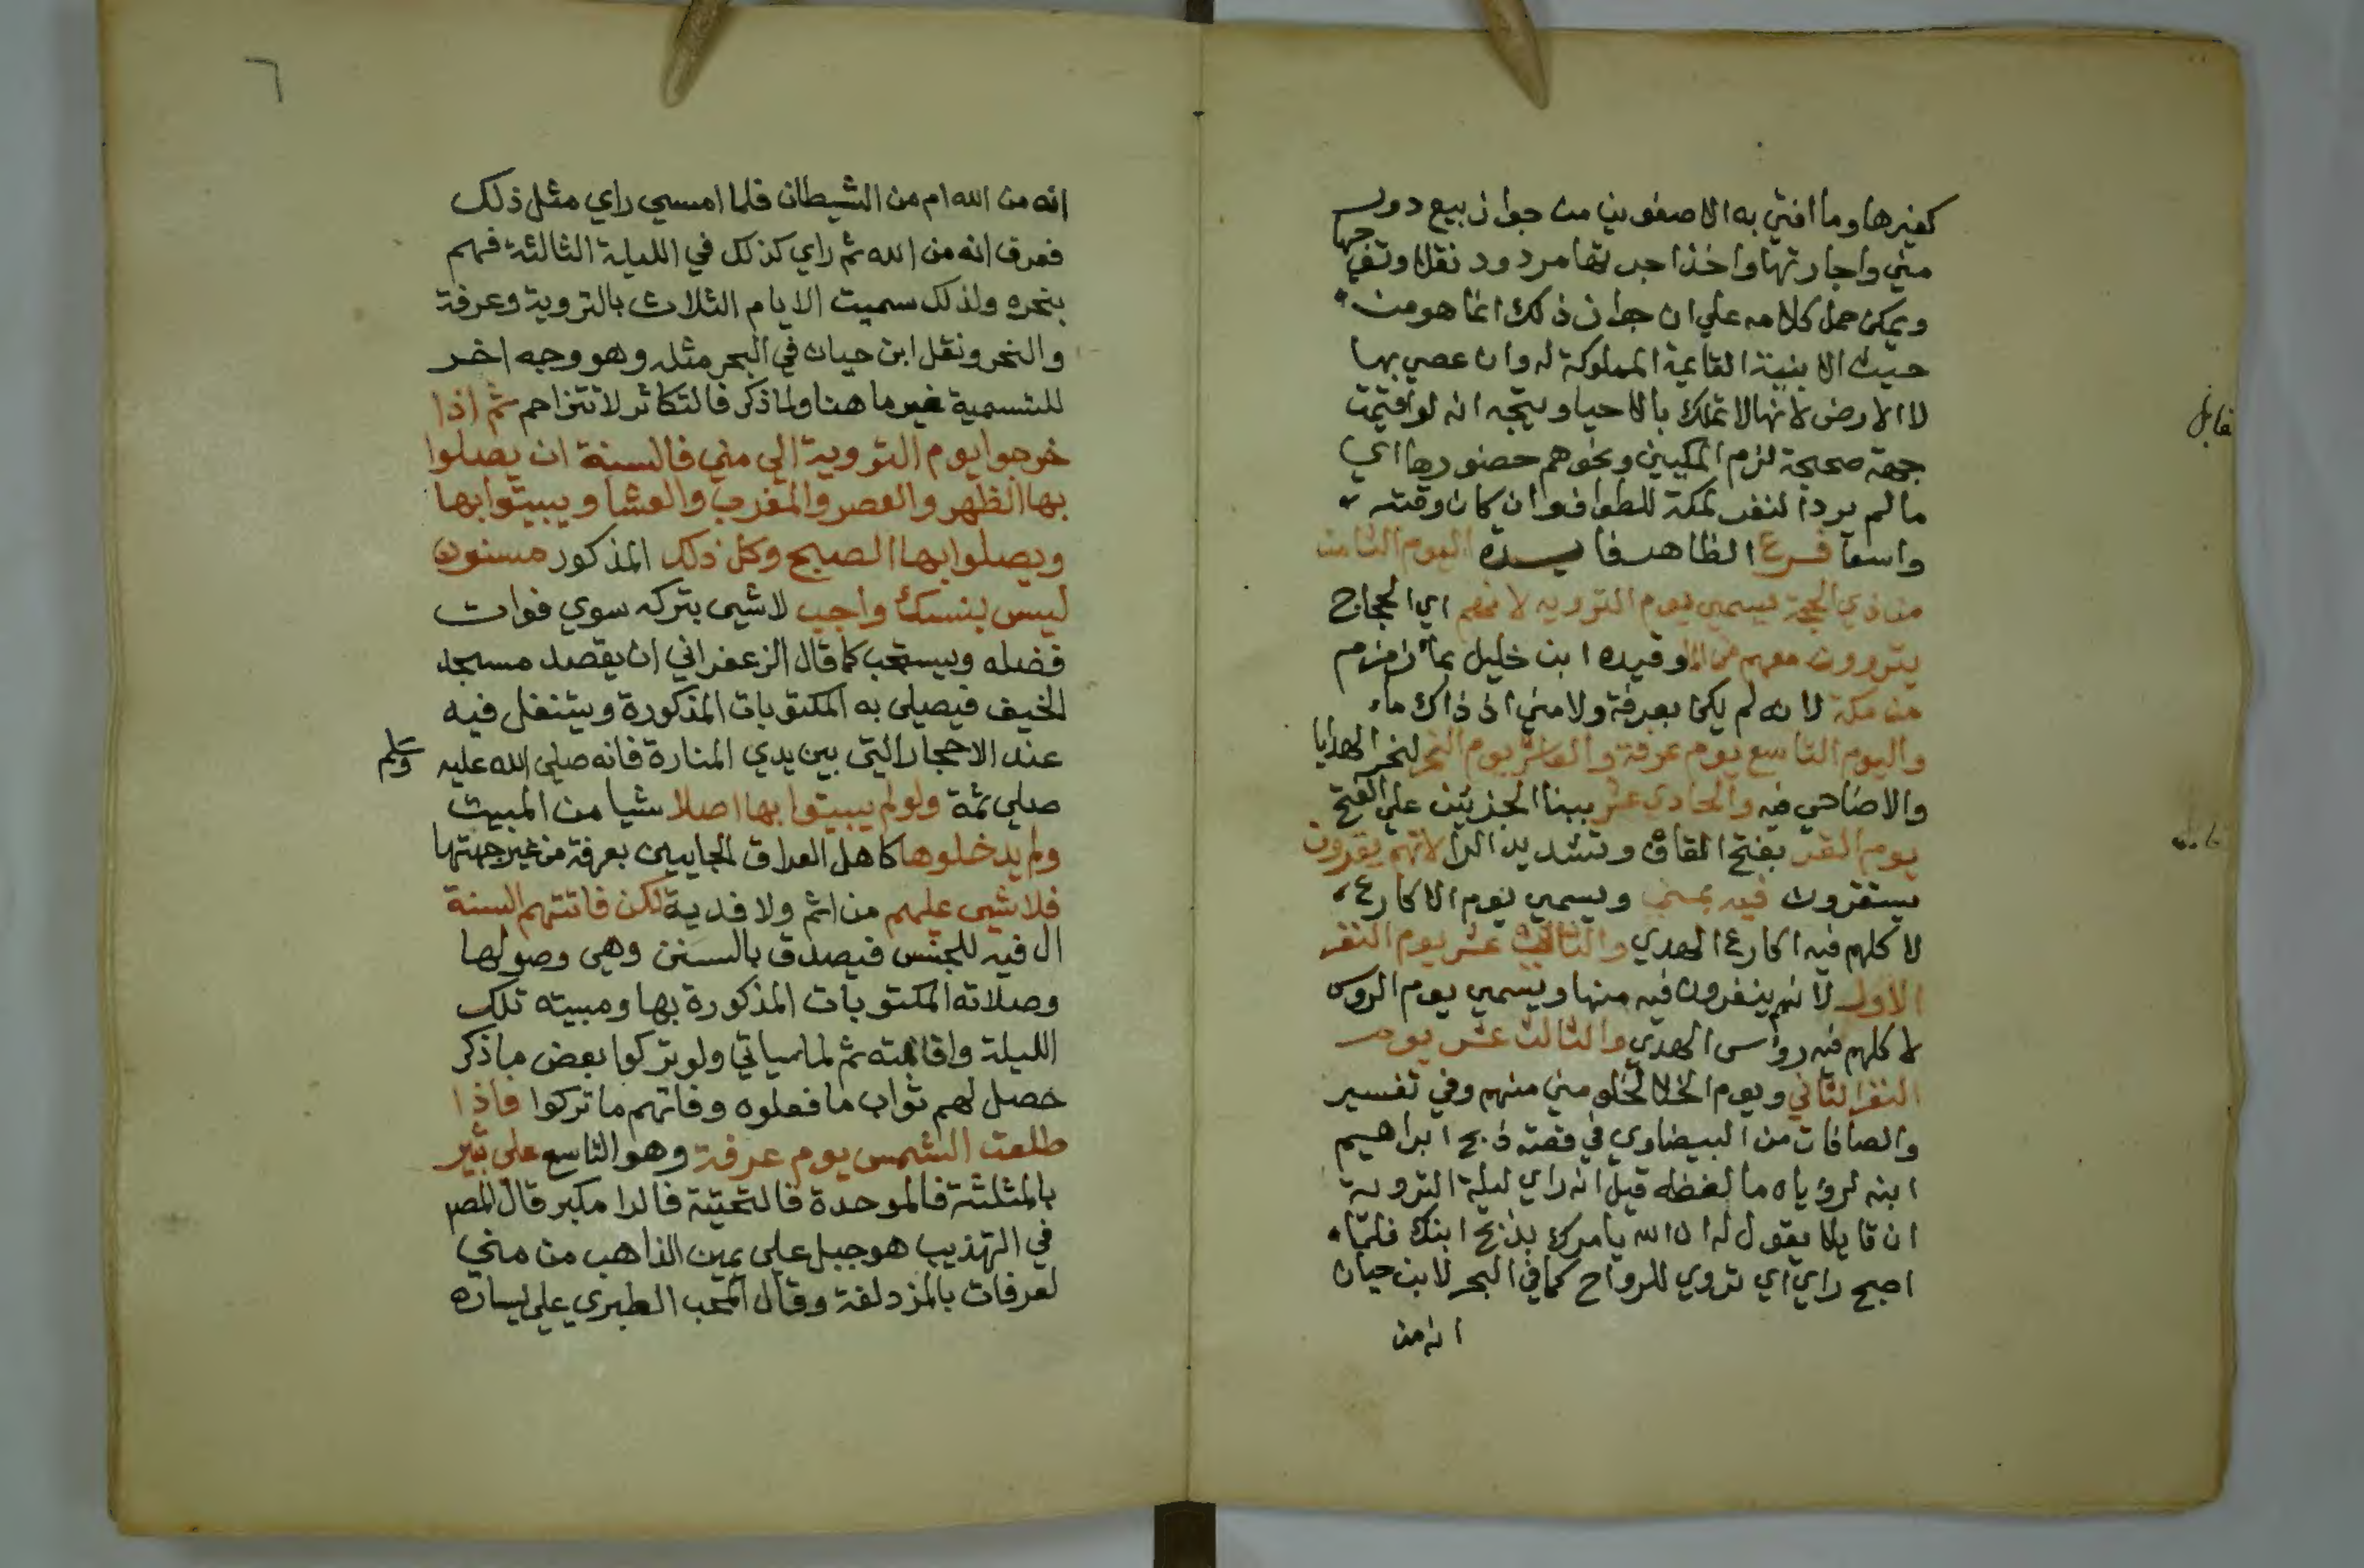 كغيرها وما افتي به الاصفوني من جواز بيع دور
مني واجارتها واخذ اجرتها مردود نقلا وتوجيها
ويمكن حمل كلامه علي ان جواز ذلك انما هو من
حيث الابنية القايمة المملوكة له وان عصي بها
لا الارض لانها لا تملك بالاحيا ويتجه انه لو اقيمت
جمعة صحيحة لزم المكيين ونحوهم حضورها اي
ما لم يرد النفر لمكة للطواف وان كان وقته
واسعا فرع الظاهر فايدة اليوم الثامن
من ذي الحجة يسمي يوم التروية لانهم اي الحجاج
يتروون معهم من الما وقيده ابن خليل بماء زمزم
من مكة لانه لم يكن بعرفة ولا مني اذ ذاك ماء
واليوم التاسع يوم عرفة والعاشر يوم النحر لنحر الهدايا
والاضاحي فيه والحادي عشر ببنا الجزئين علي الفتح
يوم القر بفتح القاف وتشديد الرا لانهم يقرون
يستقرون فيه بمني ويسمي يوم الاكارع
لاكلهم فيه اكارع الهدي والثاني عشر يوم النفر
الاول لانهم ينفرون فيه منها ويسمي يوم الروس
لاكلهم فيه رؤس الهدي والثالث عشر يوم
النفر الثاني ويوم الخلا لخلو مني منهم وفي تفسير
والصافات من البيضاوي في قصة ذبح ابراهيم
ابنه لرؤياه ما لفظه قيل انه راي ليلة التروية
ان قايلا يقول له ان الله يامرك بذبح ابنك فلما
اصبح راي اي تروي للرواح كما في البحر لابن حيان
انه من
قابل
٦
انه من الله ام من الشيطان فلما امسي راي مثل ذلك
فعرف انه من الله ثم راي كذلك في الليلة الثالثة فهم
بنحره ولذلك سميت الايام الثلاث بالتروية وعرفة
والنحر ونقل ابن حيان في البحر مثله وهو وجه اخر
للتسمية غير ما هنا ولما ذكر فالتكاثر لا تتزاحم ثم اذا
خرجوا يوم التروية الي مني فالسنة ان يصلوا
بها الظهر والعصر والمغرب والعشا ويبيتوا بها
ويصلوا بها الصبح وكل ذلك المذكور مسنون
ليس بنسك واجب لا شيى بتركه سوي فوات
فضله ويستحب كما قال الزعفراني ان يقصد مسجد
الخيف فيصلي به المكتوبات المذكورة ويتنفل فيه
عند الاحجار التي بين يدي المنارة فانه صلي الله عليه وسلم
صلي ثمة ولو لم يبيتوا بها اصلا شيا من المبيت
ولم يدخلوها كاهل العراق الجايين بعرفة من غير جهتها
فلا شيى عليهم من اثم ولا فدية لكن فاتتهم السنة
ال فيه للجنس فيصدق بالسنن وهي وصولها
وصلاته المكتوبات المذكورة بها ومبيته تلك
الليلة واقامته ثم لما سياتي ولو تركوا بعض ما ذكر
حصل لهم ثواب ما فعلوه وفاتهم ما تركوا فاذا
طلعت الشمس يوم عرفة وهو التاسع علي ثبير
بالمثلثة فالموحدة فالتحتية فالرا مكبر قال المص
في التهذيب هو جبل علي يمين الذاهب من مني
لعرفات بالمزدلفة وقال المحب الطبري علي يساره